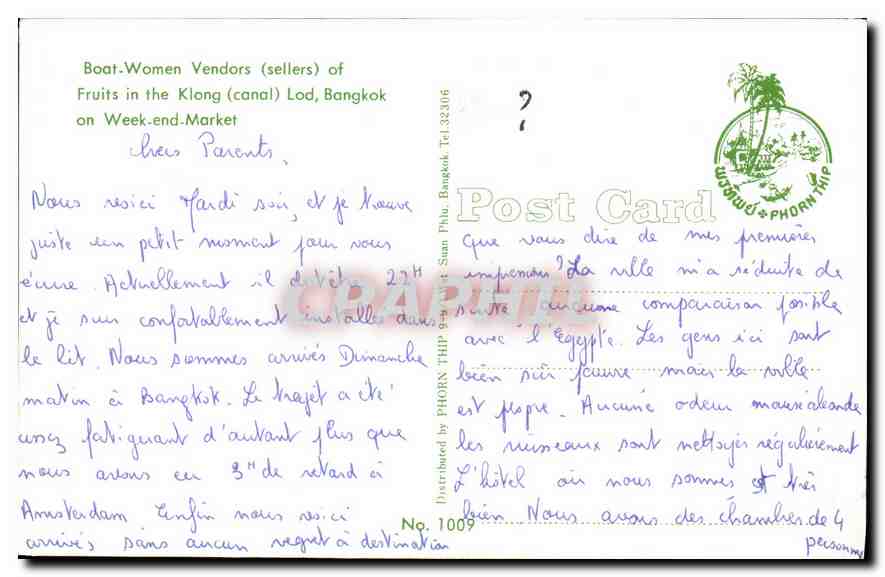 Boat-Women Vendors (sellers) of
Fruits in the Klong (canal) Lod, Bangkok
on Week-end-Market
?
Chers Parents,
Nous voici Mardi soir, et je trouve
juste un petit moment pour vous
écrire. Actuellement il doit être 22H
et je suis confortablement installés dans
le lit. Nous sommes arrivés Dimanche
matin à Bangkok. Le trajet a été
assez fatiguant d'autant plus que
nous avons eu 3H de retard à
Amsterdam. Enfin nous voici
arrivés sans aucun regret à destination
Distributed by PHORN THIP Suan Phlu, Bangkok. Tel. 32306
No. 1009
Post Card
พรทิพย์ PHORN THIP
CPARAMA
que vous dire de mes premières
impressions? La ville m'a séduite de
suite aucune comparaison possible
avec l'Egypte. Les gens ici sont
bien sûr pauvre mais la ville
est propre. Aucune odeur mauséabonde
les ruisseaux sont nettoyés régulièrement
L'hôtel où nous sommes est très
bien Nous avons des chambres de 4
personnes